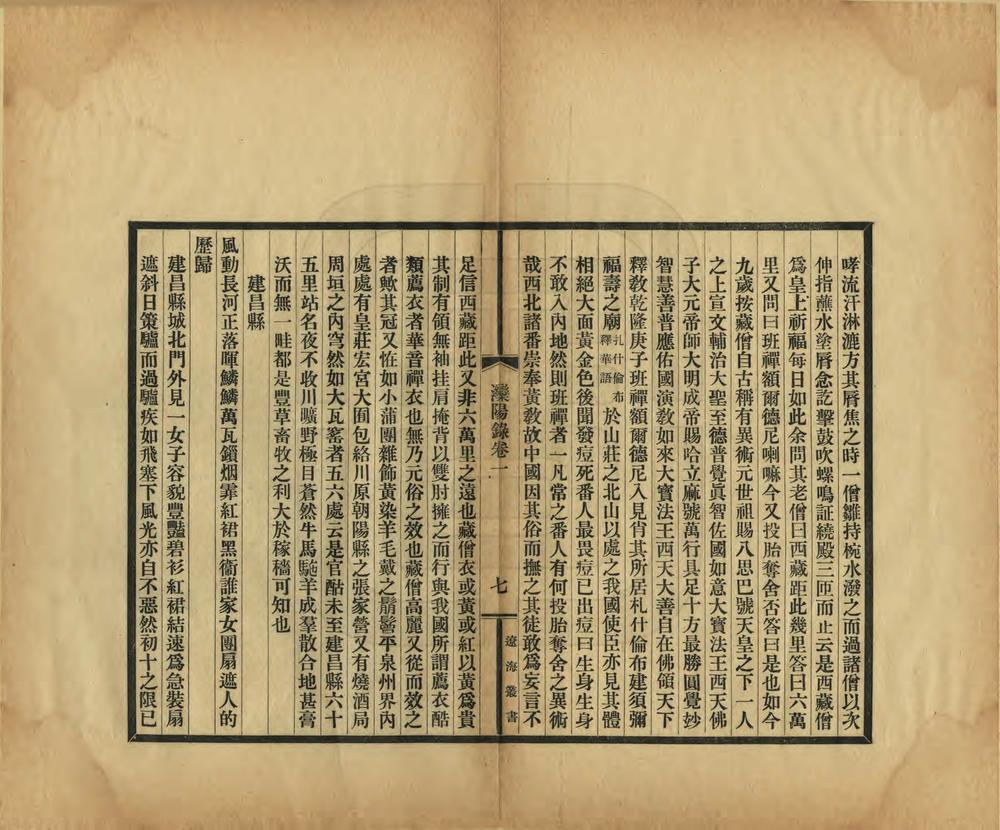 哮流汗淋漉方其脣焦之時一僧雛持椀水潑之而過諸僧以次
伸指蘸水塗脣念訖擊鼓吹螺鳴証繞殿三匝而止云是西藏僧
爲皇上祈福每日如此余問其老僧曰西藏距此幾里答曰六萬
里又問曰班禪額爾德尼喇嘛今又投胎奪舍否答曰是也如今
九歲按藏僧自古稱有異術元世祖賜八思巴號天皇之下一人
之上宣文輔治大聖至德普覺眞智佐國如意大寶法王西天佛
子大元帝師大明成帝賜哈立麻號萬行具足十方最勝圓覺妙
智慧善普應佑國演敎如來大寶法王西天大善自在佛領天下
釋敎乾隆庚子班禪額爾德尼入見肖其所居札什倫布建須彌
福壽之廟扎什倫布釋華語於山莊之北山以處之我國使臣亦見其體
相絕大面黃金色後聞發痘死番人最畏痘已出痘曰生身生身
不敢入內地然則班禪者一凡常之番人有何投胎奪舍之異術
哉西北諸番崇奉黃敎故中國因其俗而撫之其徒敢爲妄言不
灤陽錄卷一
七
遼海叢書
足信西藏距此又非六萬里之遠也藏僧衣或黃或紅以黃爲貴
其制有領無袖挂肩掩背以雙肘擁之而行與我國所謂薦衣酷
類薦衣者華音禪衣也無乃元俗之效也藏僧高麗又從而效之
者歟其冠又恠如小蒲團雜飾黃染羊毛戴之鬅鬙平泉州界內
處處有皇莊宏宮大囿包絡川原朝陽縣之張家營又有燒酒局
周垣之內穹然如大瓦窰者五六處云是官酤未至建昌縣六十
五里站名夜不收川曠野極目蒼然牛馬駞羊成羣散合地甚膏
沃而無一畦都是豐草畜牧之利大於稼穡可知也
建昌縣
風動長河正落暉鱗鱗萬瓦鎖烟霏紅裙黑衞誰家女團扇遮人的
歷歸
建昌縣城北門外見一女子容貌豐豔碧衫紅裙結速爲急裝扇
遮斜日策驢而過驢疾如飛塞下風光亦自不惡然初十之限已